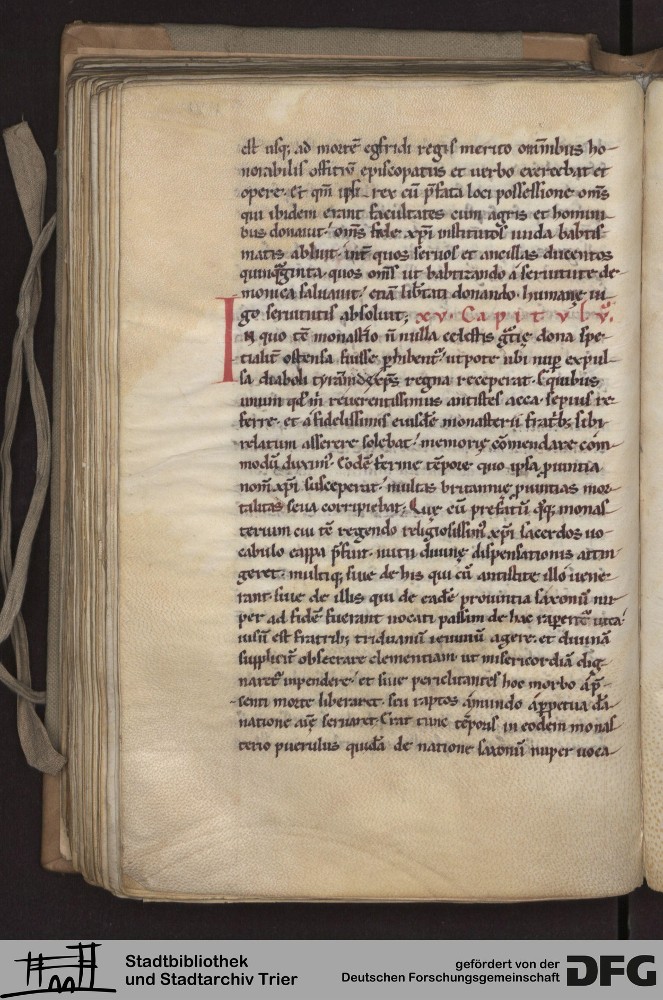 est usq; ad mortē egfridi regis merito omnibus ho-
norabilis offitiū episcopatus et uerbo exercebat et
opere. Et qm̄ ipsi rex cū p̄fata loci possessione om̄s
qui ibidem erant facultates cum agris et homini-
bus donauit. om̄s fide xp̄i institutos unda babtis-
matis abluit. int̄ quos seruos et ancillas ducentos
quinq̄ginta. quos om̄s ut babtizando a seruitute de-
monica saluauit. etiā lib̄tati donando. humanę iu-
go seruitutis absoluit; xv. Capitulū.
IN quo tē monast̄io n̄ nulla celestis gr̄tię dona spe-
tialit̄ ostensa fuisse p̄hibent̄. utpote ubi nup̄ expul-
sa diaboli tyrannide xp̄s regna receperat. E quibus
unum qd̄ m̄ reuerentissimus antistes acca. sepius re-
ferre. et a fidelissimis eiusdē monasterii fratrib; sibi
relatum asserere solebat. memorię cōmendare com-
modū duxim'. Eodē ferme tēpore quo ipsa puintia
nom̄ xp̄i susceperat. multas britannię puintias mor-
talitas seua corripiebat. Quę cū prefatū q̄q; monas-
terium cui tē regendo religiosissim' xp̄i sacerdos uo-
cabulo eappa p̄fuit. nutu diuinę dispensationis attin-
geret. multiq; siue de his qui cū antistite illo uene-
rant. siue de illis qui de eadē prouintia saxonū nu-
per ad fidē fuerant uocati passim de hac raperent̄ uita.
iusū est fratrib; triduanū ieiuniū agere. et diuinā
supplicit̄ obsecrare clementiam. ut misericordiā dig-
naret̄ inpendere. et siue periclitantes hoc morbo a p̄-
senti morte liberaret. seu raptos a mundo a ppetua dā-
natione aīę seruaret. Erat tunc tēporis in eodem monas-
terio puerulus quidā de natione saxonū nuper uoca-
Stadtbibliothek
und Stadtarchiv Trier
gefördert von der
Deutschen Forschungsgemeinschaft
DFG